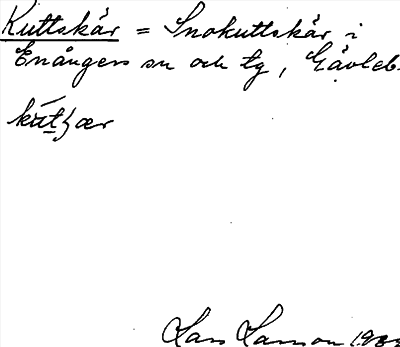 Kuttskär = Snokuttskär i
Enångers sn och tg, Gävleb.
Lars Larsson